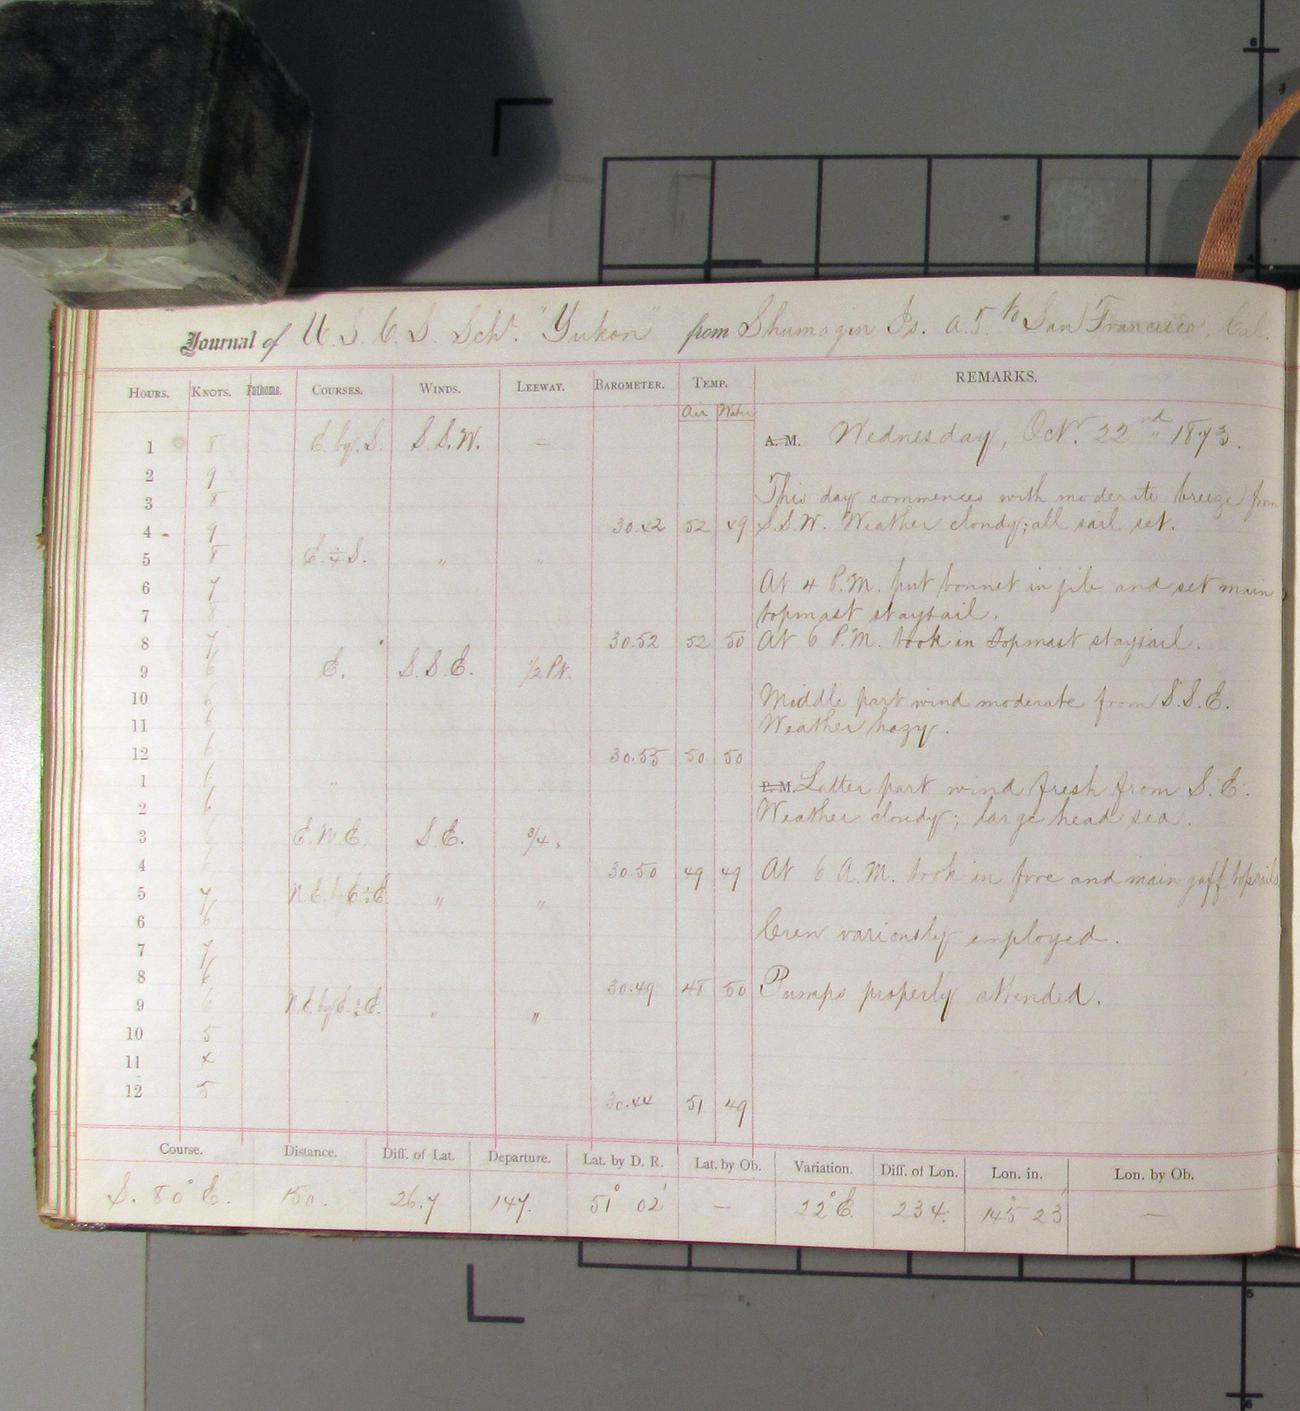 Journal of U.S.C.S. Schr. "Yukon" from Shumagin Is. A.T. to San Francisco, Cal.
HOURS. KNOTS. Fathoms. COURSES. WINDS. LEEWAY. BAROMETER. TEMP. REMARKS.
Air Water
1 8 E. by S. S.S.W. = A.M. Wednesday, Oct. 22nd 1873.
2 9
3 8 This day commences with moderate breeze from
4 9 30.42 52 49 S.S.W. Weather cloudy; all sail set.
5 8 E. ½ S. " "
6 7 At 4 P.M. put bonnet in jib and set main
7 8 topmast staysail.
8 7 30.52 52 50 At 6 P.M. took in topmast staysail.
9 6 E. S.S.E. 1/2 Pt.
10 6 Middle part wind moderate from S.S.E.
11 6 Weather hazy.
12 6 30.55 50 50
1 6 P.M. Latter part wind fresh from S.E.
2 6 Weather cloudy; large head sea.
3 E.N.E. S.E. 3/4 "
4 30.50 49 49 At 6 A.M. took in fore and main gaff topsails
5 7 N.E. by E. ½ E. " "
6 6 Crew variously employed.
7 7
8 6 30.49 48 50 Pumps properly attended.
9 6 N.E. by E. ½ E. " "
10 5
11 4
12 5 30.44 51 49
Course. Distance. Diff. of Lat. Departure. Lat. by D. R. Lat. by Ob. Variation. Diff. of Lon. Lon. in. Lon. by Ob.
S. 80° E. 150. 26.7 147. 51° 02' — 22° E. 234. 145° 23' —